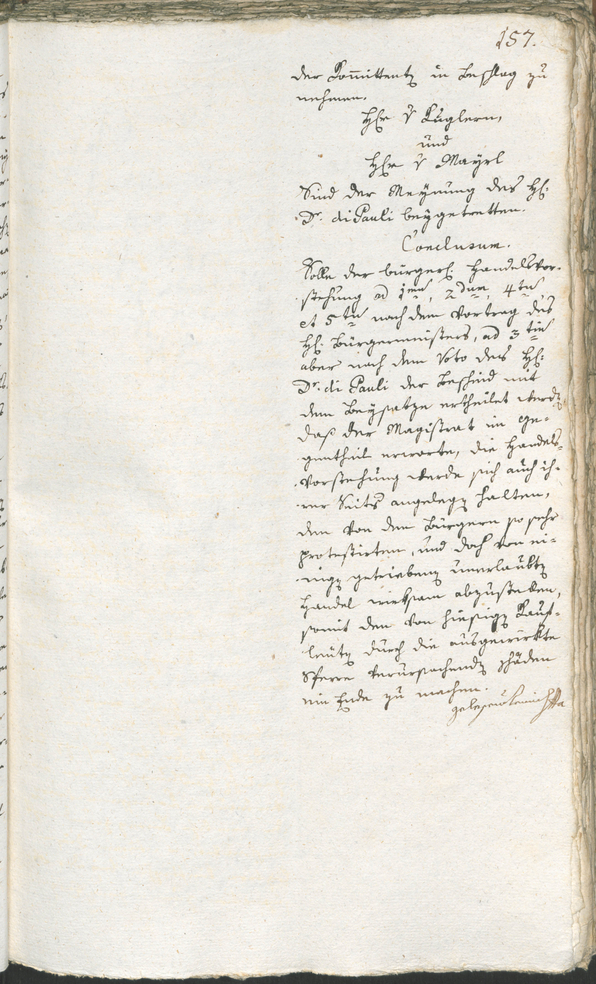 157.
der Committenten in Beschlag zu
nehmen.
Hr v Kuglern,
und
Hr v Mayrl
Sind der Meynung des H:
Dr. di Pauli beygetretten.
Conclusum.
Solle der bürgerl. Handelsvor-
stehung ad 1mum, 2dum, 4tum
et 5tum nach dem Vortrag des
H: Bürgermeisters, ad 3tium
aber nach dem Voto des H:
Dr. di Pauli der Bescheid mit
dem Beysatze ertheilet werden,
daß der Magistrat im Ge-
gentheil erwarte, die Handels-
vorstehung werde sich auch ih-
rer Seits angelegen halten,
den von den Bürgern so sehr
protestirten, und doch von ei-
nigen getriebenen unerlaubten
Handel wirksam abzustellen,
somit den von hiesigen Kauf-
leuten durch die ausgewirkte
Sperre verursachenden schäden
ein Ende zu machen.